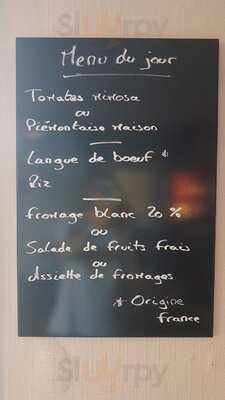 Sluurpy
Menu du jour
Tomates mimosa
ou
Piémontaise maison
Langue de boeuf *
Riz
fromage blanc 20 %
ou
Salade de fruits frais
ou
Assiette de fromages
* Origine
france
Sluurpy